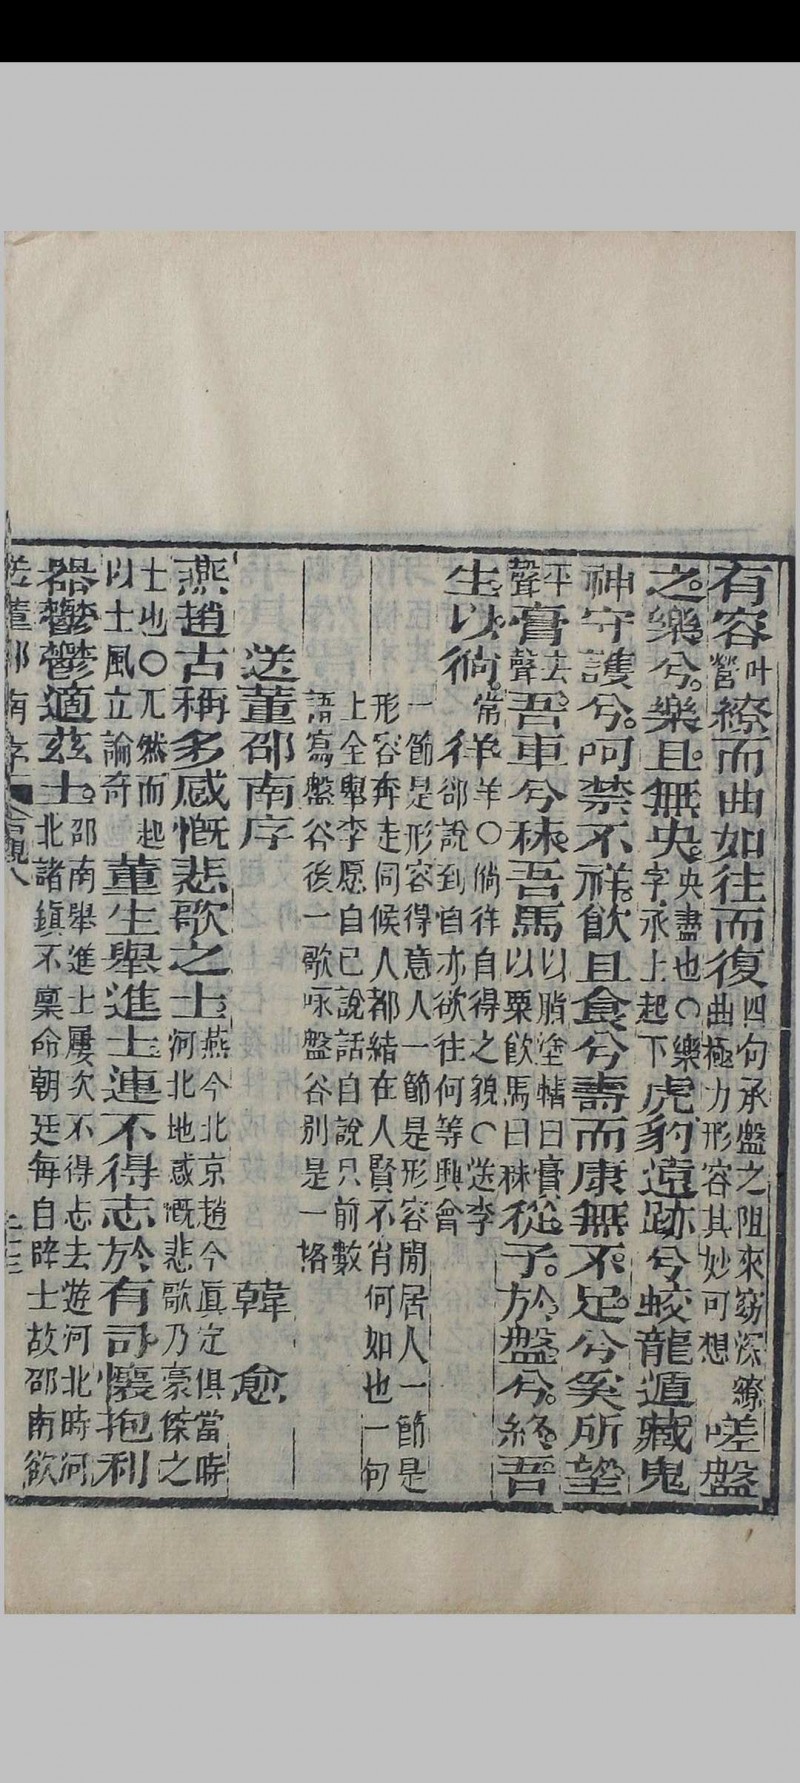 有容叶營繚而曲如往而復四句承盤之阻來窈深繚曲極力形容其妙可想嗟盤
之樂兮樂且無央央盡也〇樂字承上起下虎豹遠跡兮蛟龍遁藏鬼
神守護兮呵禁不祥飲且食兮壽而康無不足兮奚所望
平聲膏去聲吾車兮秣吾馬以脂塗轄曰膏以粟飲馬曰秣從子於盤兮終吾
生以徜常徉羊〇徜徉自得之貌〇送李卻說到自亦欲往何等興會
一節是形容得意人一節是形容閒居人一節是
形容奔走伺候人都結在人賢不肖何如也一句
上全舉李愿自已說話自說只前數
語寫盤谷後一歌咏盤谷別是一格
送董邵南序
韓愈
燕趙古稱多感慨悲歌之士燕今北京趙今眞定俱當時河北地感慨悲歌乃豪傑之
士也〇兀然而起以士風立論奇董生舉進士連不得志於有司懷抱利
器鬱鬱適茲土邵南舉進士屢次不得志去遊河北時河北諸鎮不稟命朝廷每自辟士故邵南欲
送董邵南序 卷八